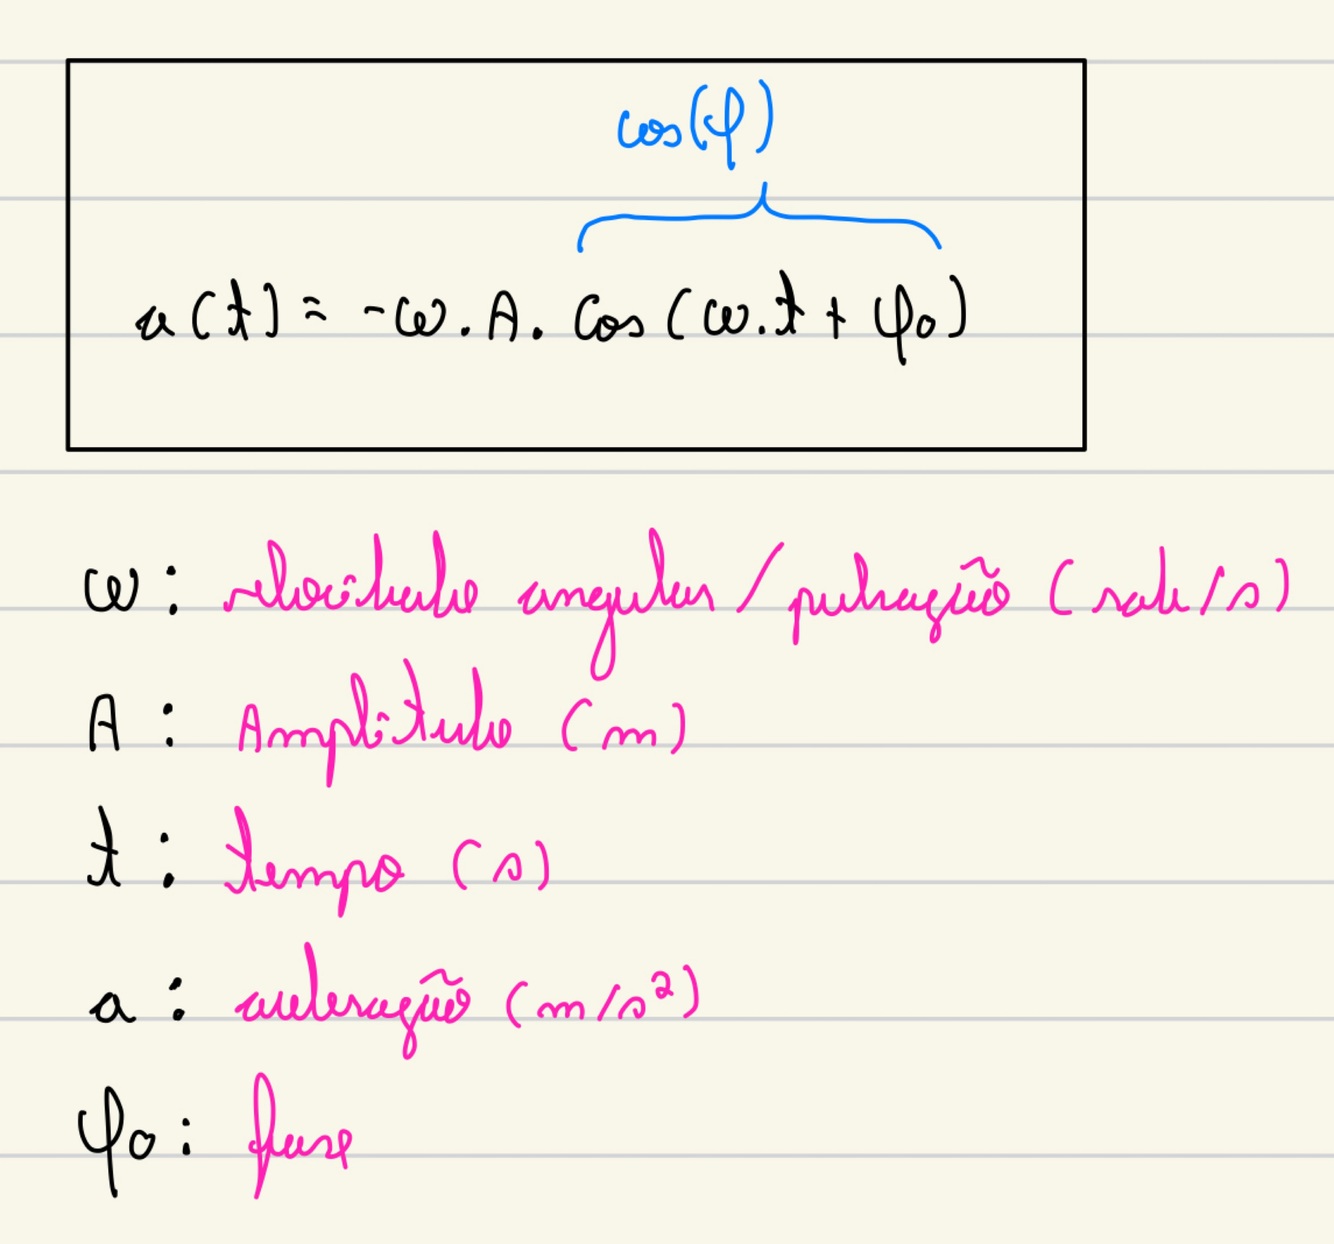 cos(φ)
a(t) = -ω.A. cos(ω.t + φ₀)
ω: velocidade angular/pulsação (rad/s)
A: Amplitude (m)
t: tempo (s)
a: aceleração (m/s²)
φ₀: fase